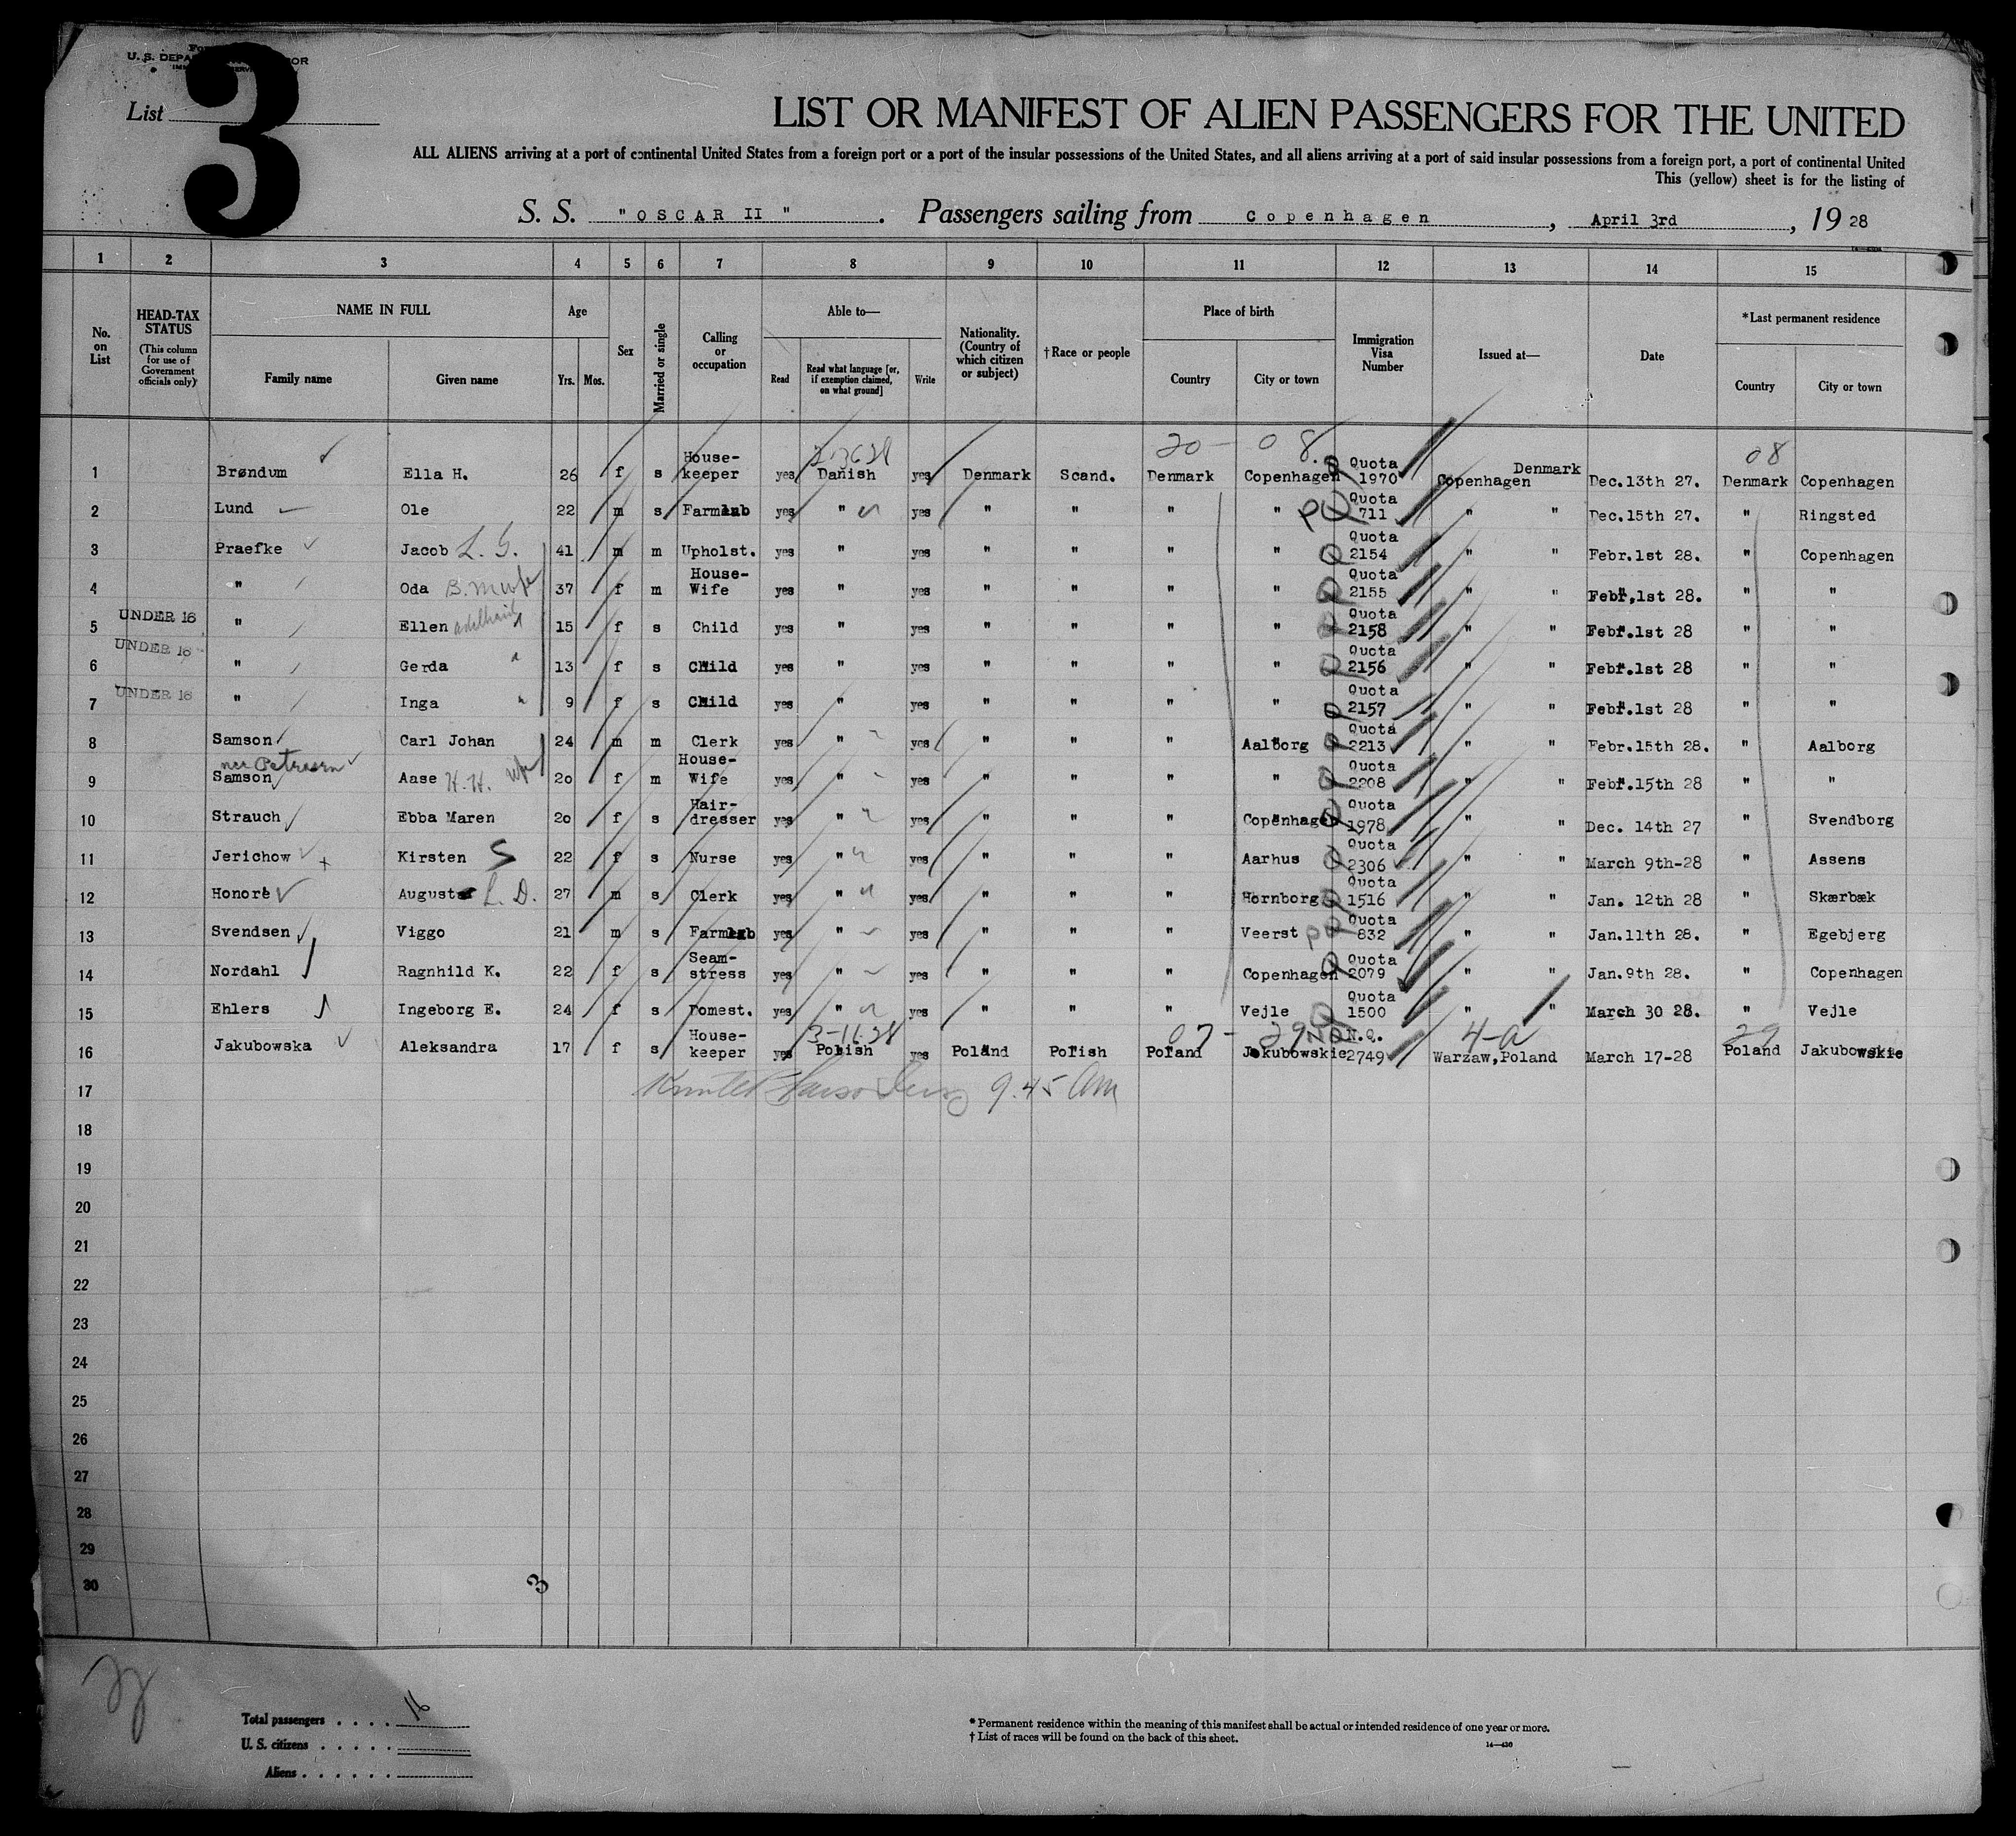 U. S. DEPA
List 3
LIST OR MANIFEST OF ALIEN PASSENGERS FOR THE UNITED
ALL ALIENS arriving at a port of continental United States from a foreign port or a port of the insular possessions of the United States, and all aliens arriving at a port of said insular possessions from a foreign port, a port of continental United
This (yellow) sheet is for the listing of
S. S. "OSCAR II". Passengers sailing from Copenhagen, April 3rd, 1928
1 2 3 4 5 6 7 8 9 10 11 12 13 14 15
No. on List
HEAD-TAX STATUS (This column for use of Government officials only)
NAME IN FULL Family name Given name
Age Yrs. Mos.
Sex
Married or single
Calling or occupation
Able to— Read Read what language [or, if exemption claimed, on what ground] Write
Nationality. (Country of which citizen or subject)
†Race or people
Place of birth Country City or town
Immigration Visa Number
Issued at—
Date
*Last permanent residence Country City or town
20 - 08. 08
1 Brøndum Ella H. 26 f s House-keeper yes Danish yes Denmark Scand. Denmark Copenhagen Q Quota 1970 Copenhagen Denmark Dec.13th 27. Denmark Copenhagen
2 Lund Ole 22 m s Farmlab yes " yes " " " " PQ Quota 711 " " Dec.15th 27. " Ringsted
3 Praefke Jacob L. G. 41 m m Upholst. yes " yes " " " " Q Quota 2154 " " Febr.1st 28. " Copenhagen
4 " Oda B. M wife 37 f m House-Wife yes " yes " " " " Q Quota 2155 " " Febr.1st 28. " "
5 UNDER 16 " Ellen 15 f s Child yes " yes " " " " Q Quota 2158 " " Febr.1st 28 " "
6 UNDER 16 " Gerda " 13 f s Child yes " yes " " " " Q Quota 2156 " " Febr.1st 28 " "
7 UNDER 16 " Inga " 9 f s Child yes " yes " " " " Q Quota 2157 " " Febr.1st 28 " "
8 Samson Carl Johan 24 m m Clerk yes " yes " " " Aalborg Q Quota 2213 " " Febr.15th 28. " Aalborg
nee Petersen
9 Samson Aase H. H. wife 20 f m House-Wife yes " yes " " " " Q Quota 2208 " " Febr.15th 28 " "
10 Strauch Ebba Maren 20 f s Hair-dresser yes " yes " " " Copenhagen Q Quota 1978 " " Dec. 14th 27 " Svendborg
11 Jerichow Kirsten S 22 f s Nurse yes " yes " " " Aarhus Q Quota 2306 " " March 9th-28 " Assens
12 Honoré August L. D. 27 m s Clerk yes " yes " " " Hornborg Q Quota 1516 " " Jan. 12th 28 " Skærbæk
13 Svendsen Viggo 21 m s Farmlab yes " yes " " " Veerst PQ Quota 832 " " Jan.11th 28. " Egebjerg
14 Nordahl Ragnhild K. 22 f s Seam-stress yes " yes " " " Copenhagen Q Quota 2079 " " Jan.9th 28. " Copenhagen
15 Ehlers Ingeborg E. 24 f s Domest. yes " yes " " " Vejle Q Quota 1500 " " March 30 28. " Vejle
3-16-28 07 - 29 NQ 4-a 29
16 Jakubowska Aleksandra 17 f s House-keeper yes Polish yes Poland Polish Poland Jakubowskie N.Q. 2749 Warzaw,Poland March 17-28 Poland Jakubowskie
17 9.45 am
18
19
20
21
22
23
24
25
26
27
28
29
30
3
Total passengers . . . . 16
U. S. citizens . . . . .
Aliens . . . . . .
* Permanent residence within the meaning of this manifest shall be actual or intended residence of one year or more.
† List of races will be found on the back of this sheet.
14—430